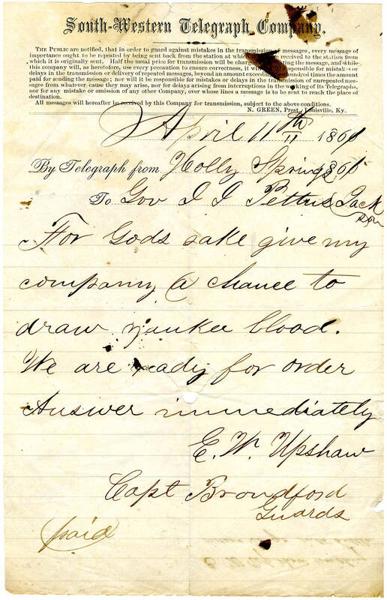 South-Western Telegraph Company.
THE PUBLIC are notified, that in order to guard against mistakes in the transmission of messages, every message of
importance ought to be repeated by being sent back from the station at which it is to be received to the station from
which it is originally sent. Half the usual price for transmission will be charged for repeating the message, and while
this company will, as heretofore, use every precaution to ensure correctness, it will not be responsible for mistakes or
delays in the transmission or delivery of repeated messages, beyond an amount exceeding five hundred times the amount
paid for sending the message; nor will it be responsible for mistakes or delays in the transmission of unrepeated mes-
sages from whatever cause they may arise, nor for delays arising from interruptions in the working of its Telegraphs,
nor for any mistake or omission of any other company, over whose lines a message is to be sent to reach the place of
destination.
All messages will hereafter be received by this Company for transmission, subject to the above conditions.
N. GREEN, Prest., Louisville, Ky.
April 11th 1861
By Telegraph from Holly Springs 1861
To Gov J J Pettus Jack
son
For Gods sake give my
company a chance to
draw yankee blood.
We are ready for order
Answer immediately
E. W. Upshaw
Capt
Guards
paid